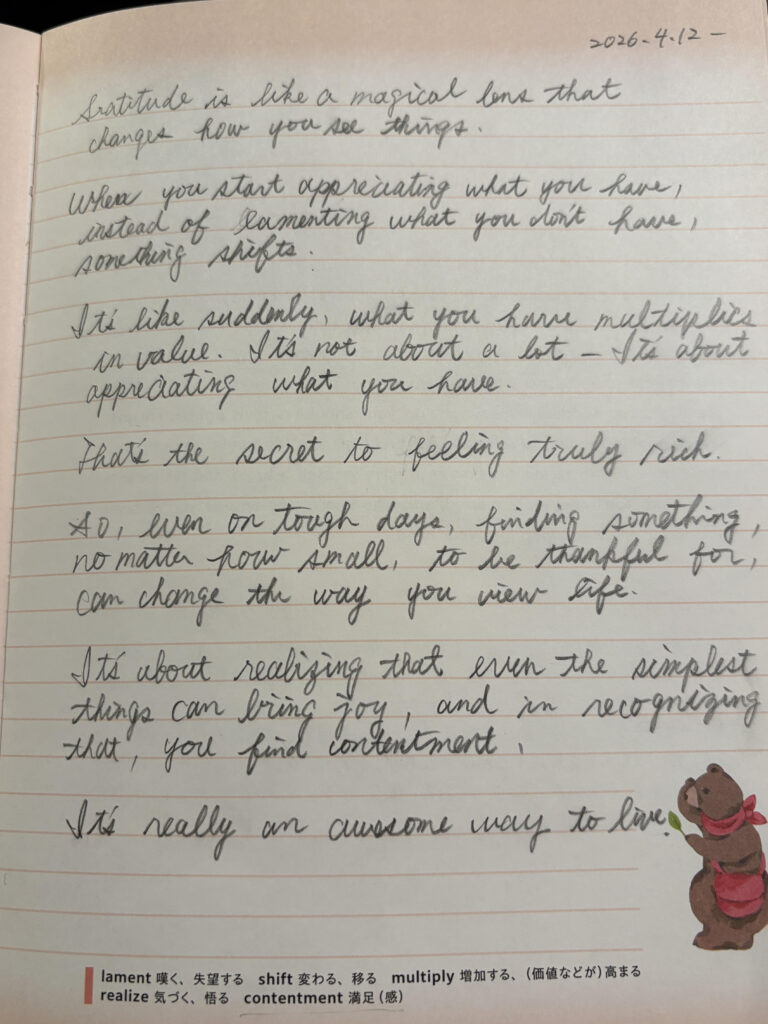 2026.4.12-
Gratitude is like a magical lens that
changes how you see things.
When you start appreciating what you have,
instead of lamenting what you don't have,
something shifts.
It's like suddenly, what you have multiplies
in value. It's not about a lot - It's about
appreciating what you have.
That's the secret to feeling truly rich.
So, even on tough days, finding something,
no matter how small, to be thankful for,
can change the way you view life.
It's about realizing that even the simplest
things can bring joy, and in recognizing
that, you find contentment.
It's really an awesome way to live.
lament 嘆く、失望する shift 変わる、移る multiply 増加する、(価値などが)高まる
realize 気づく、悟る contentment 満足(感)